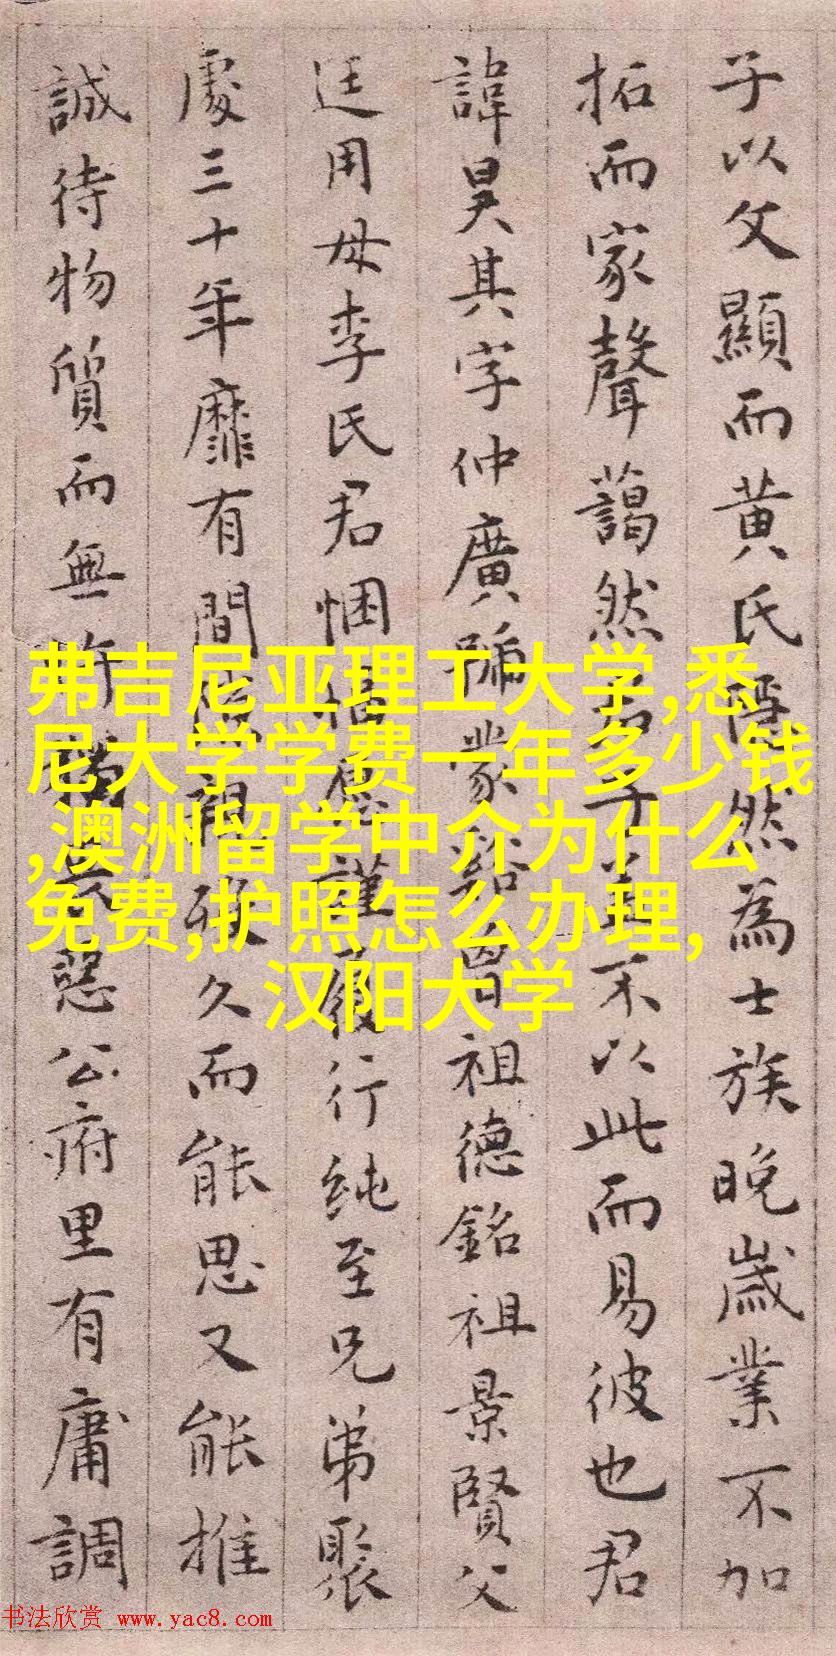 子以父顯而黄氏隱然為士族晚歲業不加
拓而家聲藹然君子善不以此而易彼也君
諱昊其字仲廣號蒙谿曾祖德銘祖景賢父
廷用母李氏君悃愊愿謹履行純至兄弟聚
處三十年靡有間言雖久而能思又能推
誠待物質而無所公府里有庸調
弗吉尼亚理工大学,悉
尼大学学费一年多少钱
,澳洲留学中介为什么
免费,护照怎么办理,
汉阳大学
书法欣赏 www.yac8.com